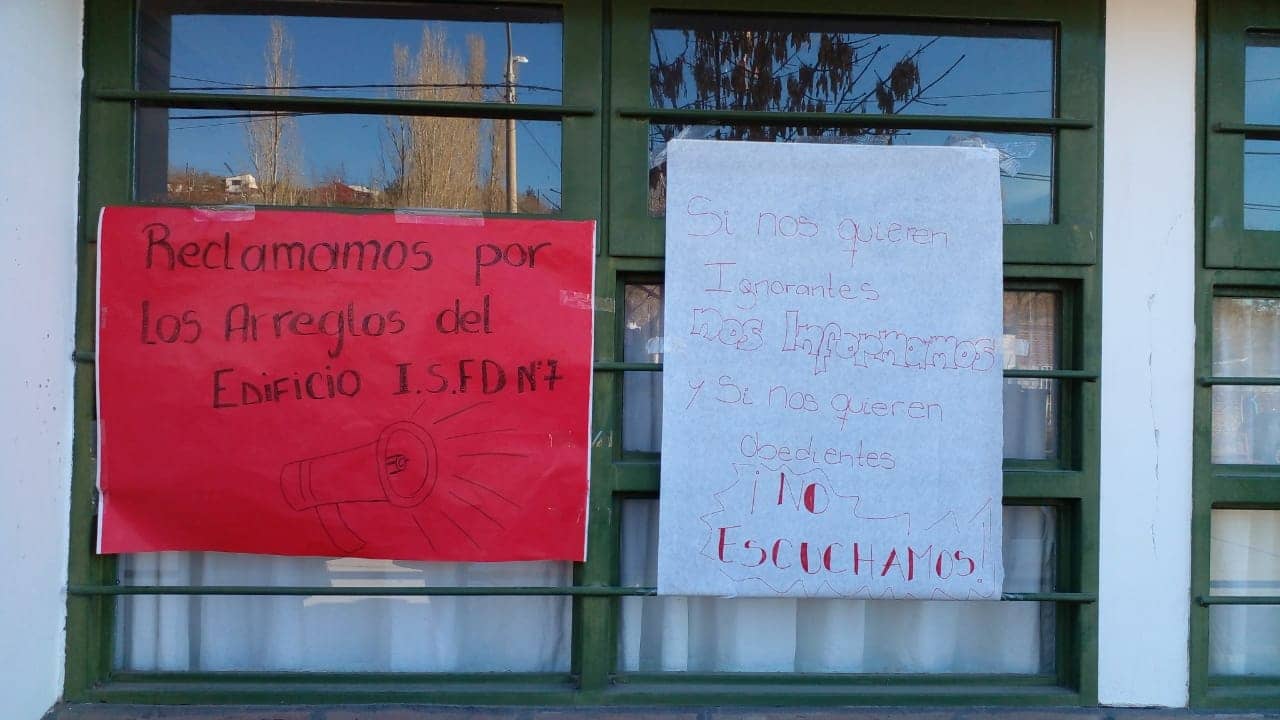 Reclamamos por
los Arreglos del
Edificio I.S.F.D N°7
Si nos quieren
Ignorantes
nos Informamos
y Si nos quieren
Obedientes
¡NO
ESCUCHAMOS!